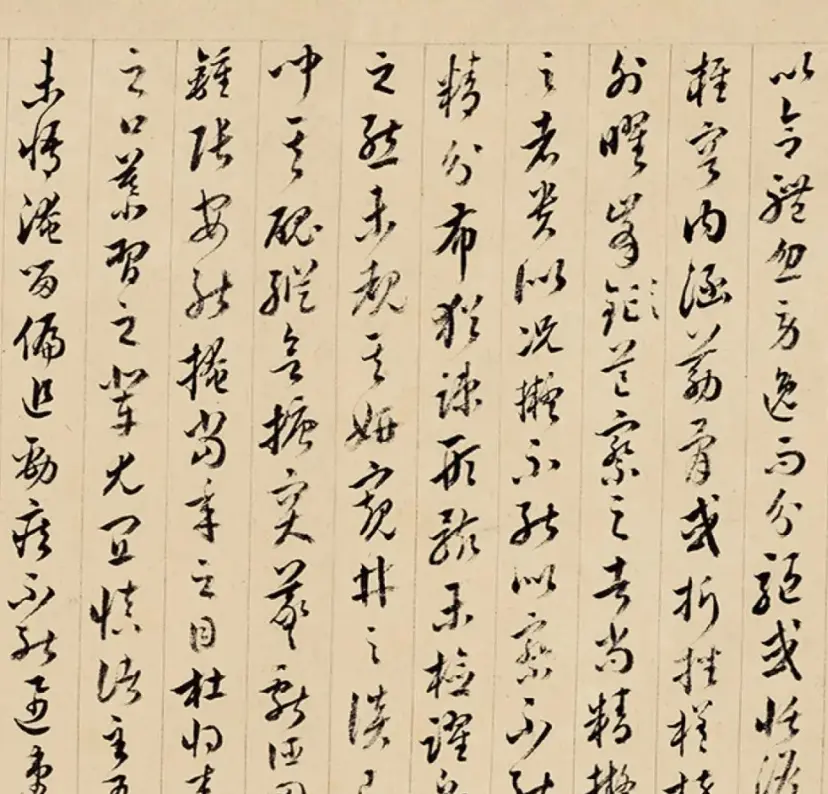 以合體忽勞逸而分驅或恬澹
雍容内涵筋骨或折挫槎枿
外曜峯鋩芒察之者尚精擬
之者貴似況擬不能似察不能
精分布猶踈形骸未檢躍泉
之態未覩其妍窺井之談已
聞其醜縱欲搪突羲獻誣罔
鍾張安能掩當年之目杜將來
之口慕習之輩尤宜慎諸至有
未悟淹留偏追勁疾不能迅速